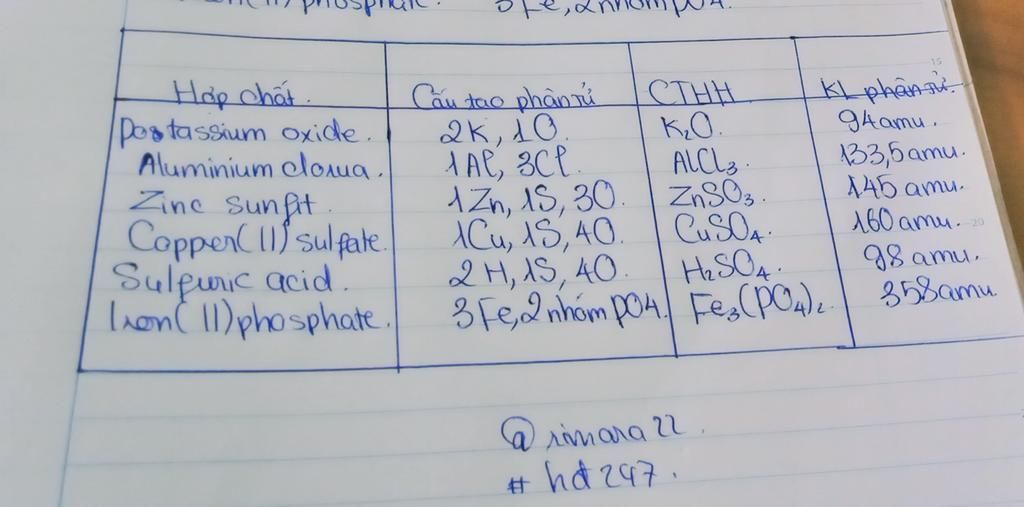 (II) phosphate. 3Fe, 2nhóm PO4.
Hợp chất. Cấu tạo phân tử CTHH KL phân tử.
Postassium oxide. 2K, 1O. K₂O. 94amu.
Aluminium clorua. 1Al, 3Cl. AlCl₃. 133,5amu.
Zinc sunfit. 1Zn, 1S, 3O. ZnSO₃. 145 amu.
Copper(II) sulfate. 1Cu, 1S, 4O. CuSO₄. 160amu.
Sulfuric acid. 2H, 1S, 4O. H₂SO₄. 98 amu.
Iron(II) phosphate. 3Fe, 2nhóm PO4. Fe₃(PO₄)₂. 358amu
@rimara22.
#hd247.